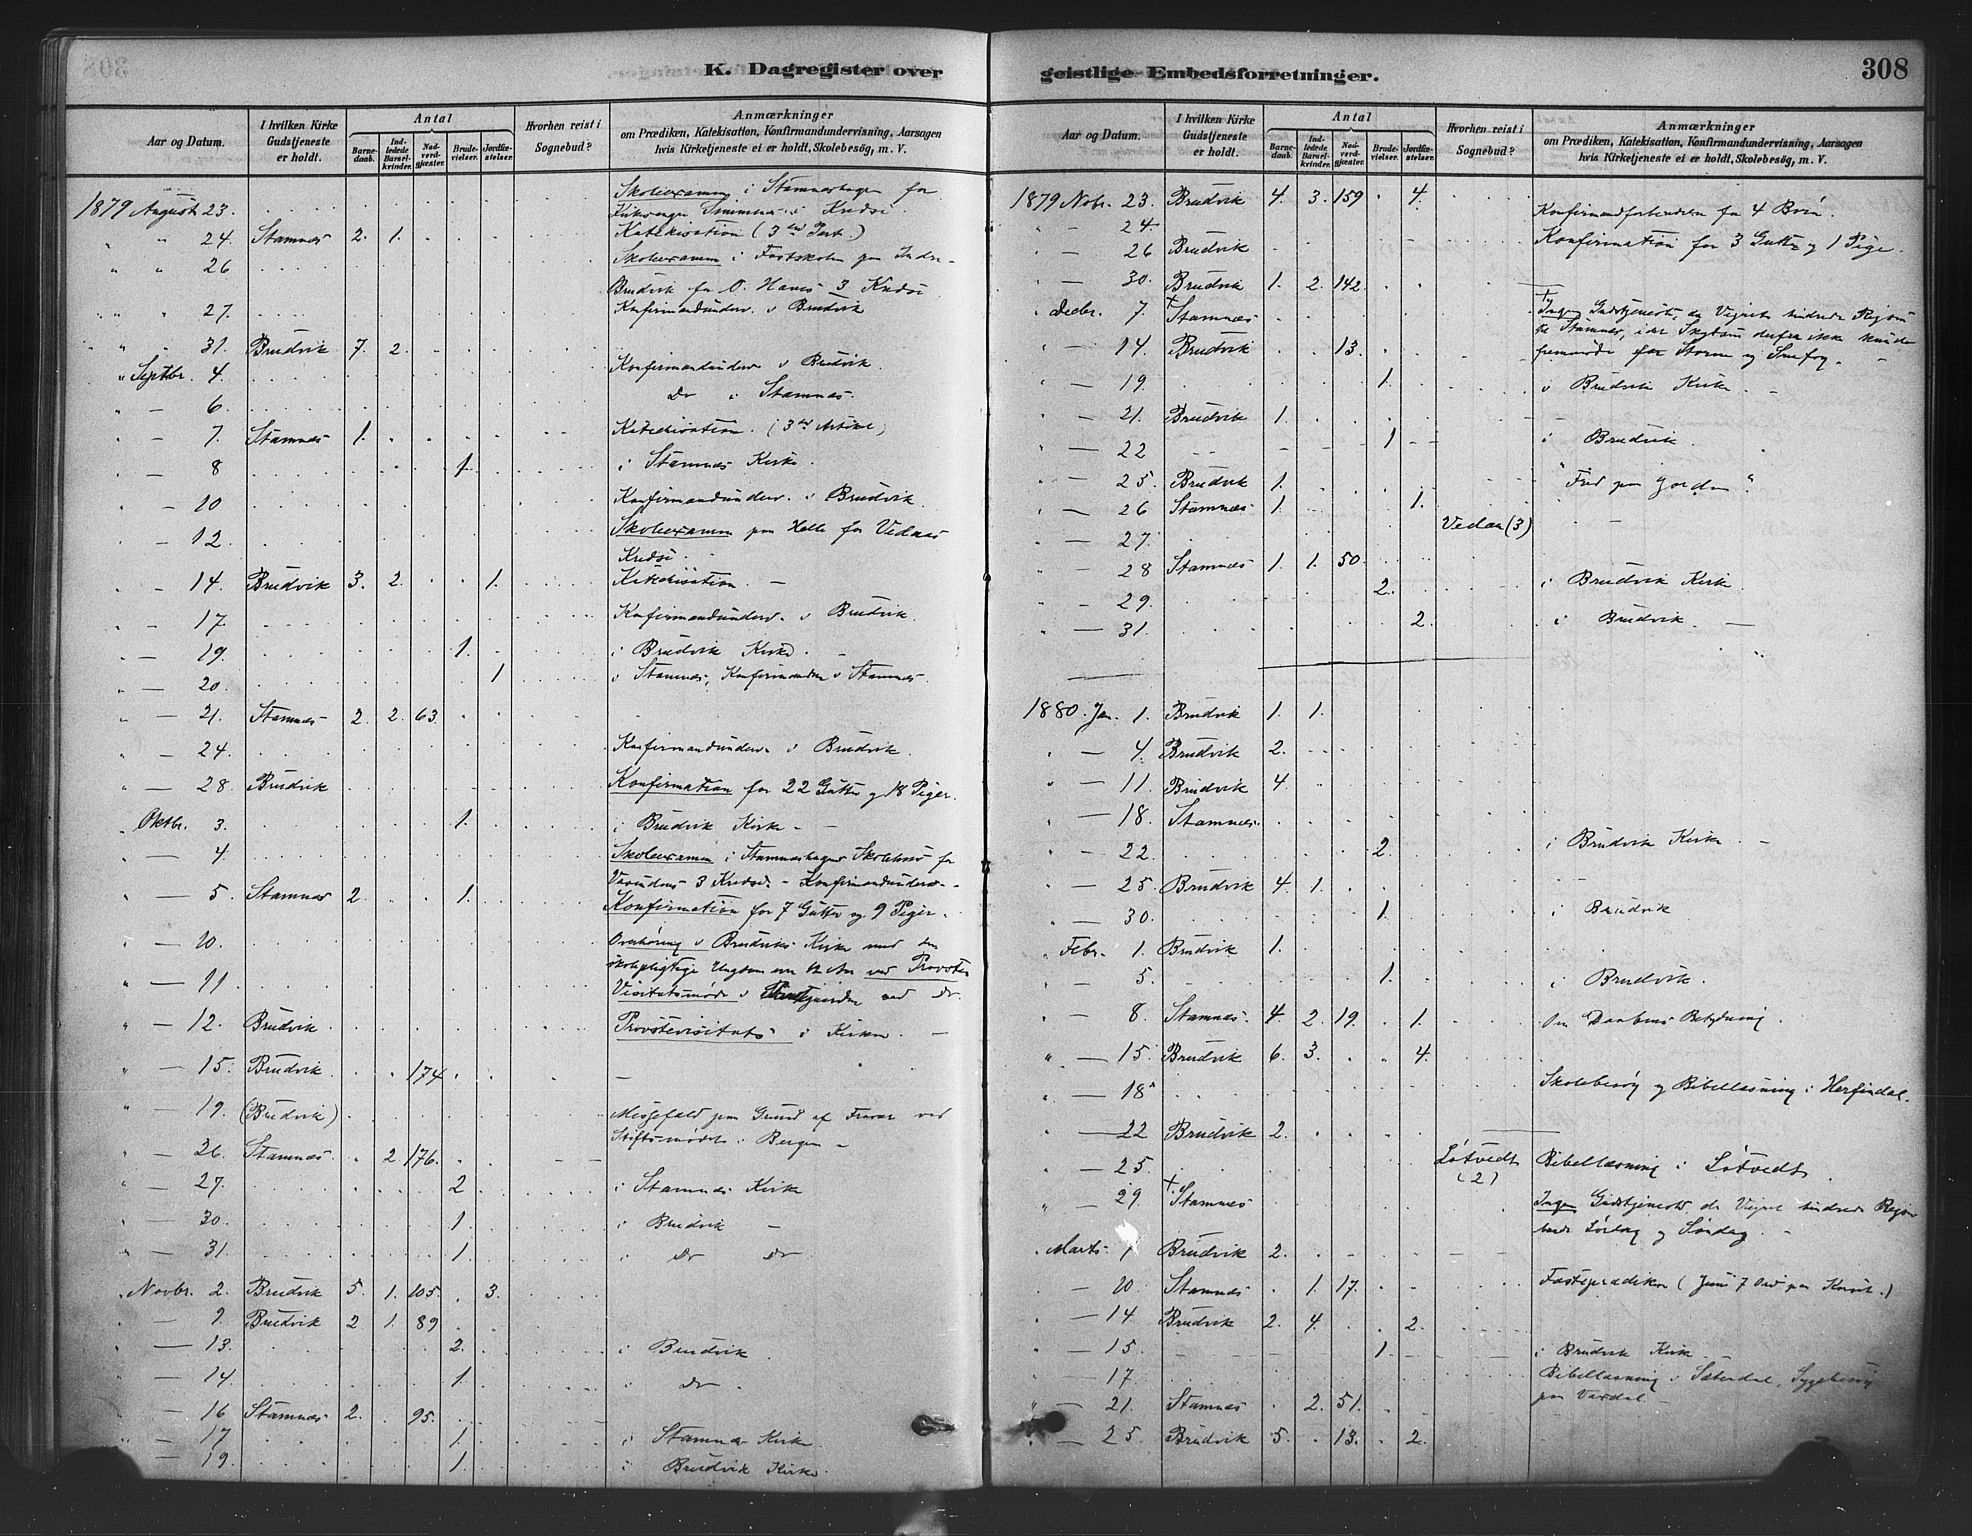 K. Dagregister over geistlige Embedsforretninger. 308
Aar og Datum. I hvilken Kirke Gudstjeneste er holdt. Antal Barnedaab. Indledede Barselkvinder. Nadverdgjester. Brudevielser. Jordfæstelser. Hvorhen reist i Sognebud? Anmærkninger om Prædiken, Katekisation, Konfirmandundervisning, Aarsagen hvis Kirketjeneste ei er holdt, Skolebesøg, m. V.
1879 August 23. Skoleexamen i Stamneshagen for
Kredse.
" " 24. Stamnes 2. 1. Katekisation (3die Part.)
" " 26 Skoleexamen i Fastskolen paa Indre
Brudvik for O. 3 Kredse
" " 27. Konfirmandunderv. i Brudvik
" " 31. Brudvik 7. 2.
" Septbr. 4. Konfirmandunderv i Brudvik.
" — 6. Do i Stamnes.
" — 7. Stamnes 1. Katekisation. (3die Artikel)
— 8 1. i Stamnes Kirke.
— 10 Konfirmandunderv. i Brudvik.
— 12. Skoleexamen paa Helle for Vedaas
Kredse.
" — 14. Brudvik 3. 2. 1. Katekisation. —
— 17. Konfirmandunderv i Brudvik.
" — 19. 1. i Brudvik Kirke. —
— 20. 1 i Stamnes, i Stamnes.
" — 21. Stamnes 2. 2. 63.
" — 24. Konfirmandunderv i Brudvik.
" — 28 Brudvik Konfirmation for 22 Gutter og 18 Piger.
" Oktbr. 3. 1. i Brudvik Kirke —
" — 4. Skoleexamen i Stamneshagens for
3 Kredse. — Konfirmandunderv. —
" — 5. Stamnes 2. 1. Konfirmation for 7 Gutter og 9 Piger.
" — 10. Overhøring i Brudviks Kirke med den
skolepligtige Ungdom ved Provste
" — 11. Visitatsmøde i ved Do.
" — 12. Brudvik Provstevisitats i Kirken —
" — 15. Brudvik 174. —
" — 19. (Brudvik) Messefald paa Grund af Fravær ved
Stiftsmødet i Bergen —
" — 26. Stamnes 2. 176.
" — 27. 2 i Stamnes Kirke
" — 30. 1. i Brudvik —
" — 31. 1. i Do Do
" Novbr. 2. Brudvik 5. 1. 105. 3.
" — 9. Brudvik 2. 1. 89
" — 13. 2. i Brudvik.
" — 14. 1. i Do.
" — 16 Stamnes 2. 95.
" — 17 1. i Stamnes Kirke.
" — 19. 1. i Brudvik Kirke.
Aar og Datum. I hvilken Kirke Gudstjeneste er holdt. Antal Barnedaab. Indledede Barselkvinder. Nadverdgjester. Brudevielser. Jordfæstelser. Hvorhen reist i Sognebud? Anmærkninger om Prædiken, Katekisation, Konfirmandundervisning, Aarsagen hvis Kirketjeneste ei er holdt, Skolebesøg, m. V.
1879 Nobr. 23. Brudvik 4. 3. 159 4.
" — 24. Konfirmandforberedelse for 4 Børn.
" — 26 Brudvik Konfirmation for 3 Gutter og 1 Pige.
— 30. Brudvik 1. 2. 142.
" Decbr. 7. + Stamnes + Ingen Gudstjeneste, da Veiret hindrede Reisen
til Stamnes, idet Skydsen derfra ikke kunde
" — 14. Brudvik 13. fremmøde for Storm og Snefog. —
" — 19. 1. i Brudvik Kirke —
" — 21. Brudvik 1.
" — 22 1 i Brudvik.
" — 25. Brudvik 1. "Fred paa Jorden".
" — 26 Stamnes 1. 1.
" — 27. Vedaa (3)
" — 28 Stamnes 1. 1. 50.
" — 29. 2. i Brudvik Kirke
" — 31. 2. i Brudvik. —
1880. Jan. 1. Brudvik 1. 1.
" — 4. Brudvik 2.
" — 11. Brudvik 4.
" — 18. Stamnes.
" — 22. 2. i Brudvik Kirke —
" — 25. Brudvik 4. 1.
" — 30. 1. i Brudvik
" Febr. 1. Brudvik 1.
" — 5. 1. i Brudvik.
" — 8. Stamnes. 4. 2. 19. 1. Om Daabens Betydning.
" — 15. Brudvik 6. 3. 4.
" — 18. Skolebesøg og Bibellæsning i Herfindal.
" — 22 Brudvik 2.
" — 25. Løtvedt (2) Bibellæsning i Løtvedt
" — 29 + Stamnes Ingen Gudstjeneste, da Veiret hindrede Reisen
baade Lørdag og Søndag. —
" Marts Brudvik 2.
" — 10 Stamnes 1. 17. Fasteprædiken ( 7 Ord paa Korset.)
" — 14 Brudvik 2. 4. 2.
" — 15. 1. i Brudvik Kirke
" — 17. Bibellæsning i Sæterdal, Sygebesøg
" — 21. Stamnes 2. 51. paa Vardal —
" — 25. Brudvik 5. 13. 2.